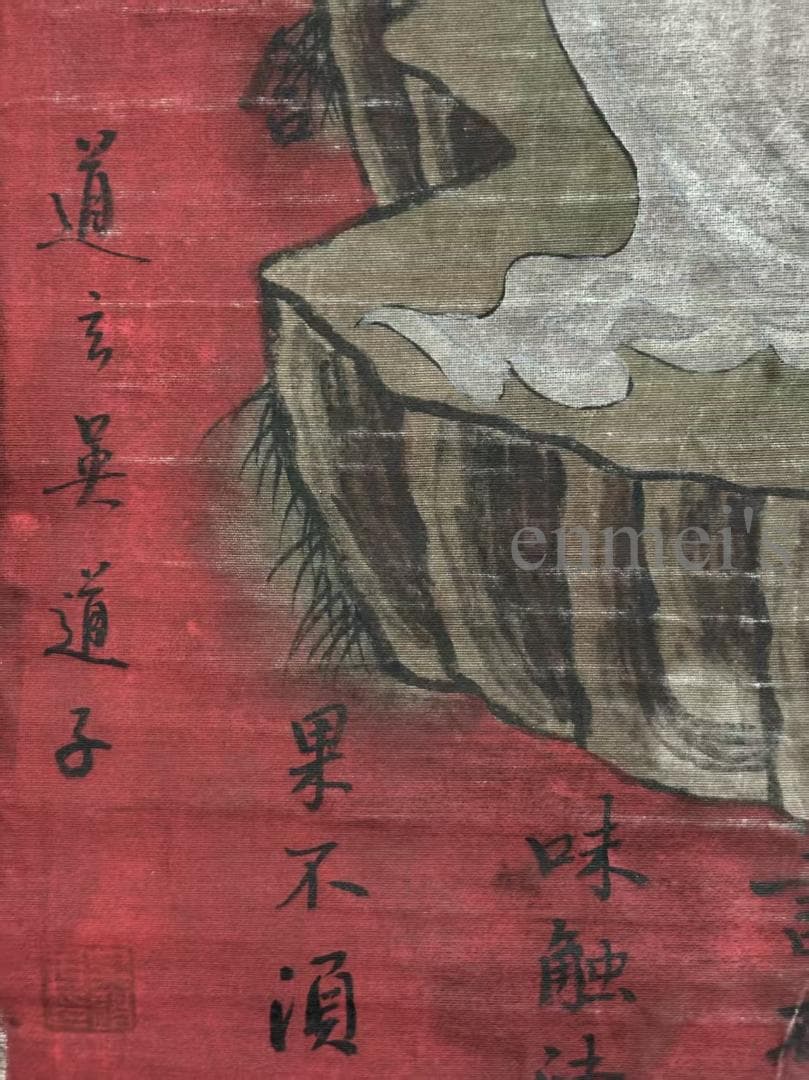 味触法
果不湏
道玄吴道子
enmei's